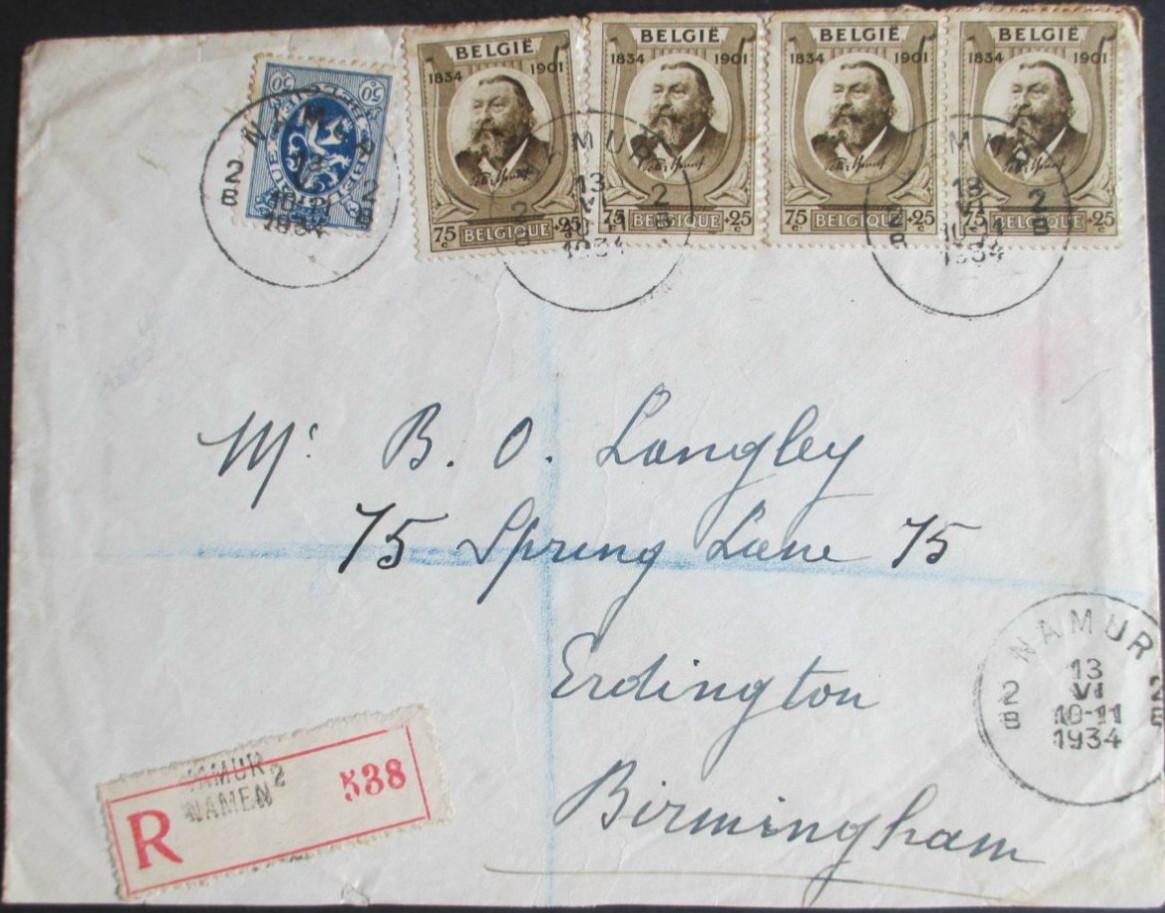 BELGIË
1834 1901
75c BELGIQUE +25c
BELGIË
1834 1901
75c BELGIQUE +25c
BELGIË
1834 1901
75c BELGIQUE +25c
BELGIË
1834 1901
75c BELGIQUE +25c
50 50
NAMUR
2B 2B
10-11
1934
Mr. B. O. Langley
75 Spring Lane 75
Erdington
Birmingham
NAMUR
13
VI
2B 10-11 2B
1934
R
NAMUR 2
NAMEN
538